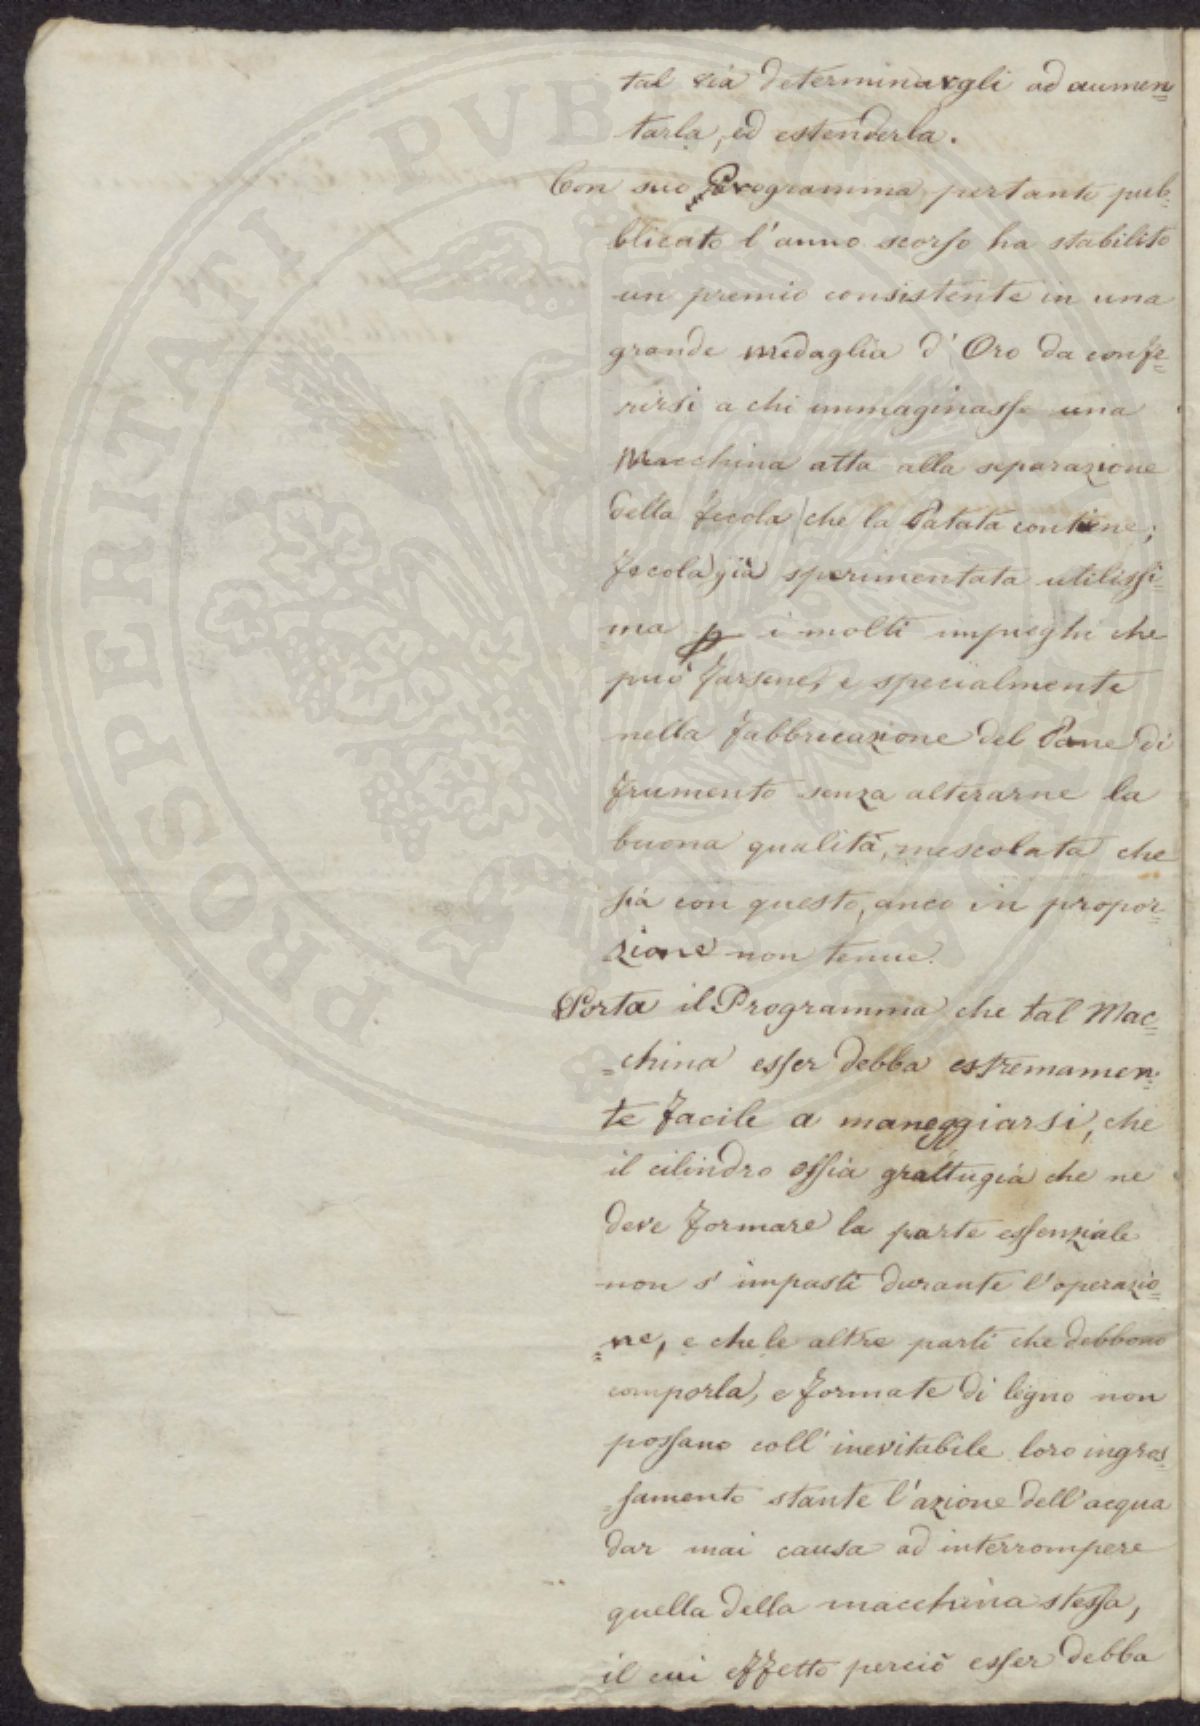 tal via determinargli ad aumen=
tarla, ed estenderla.
Con suo Programma pertanto pub=
blicato l'anno scorso ha stabilito
un premio consistente in una
grande medaglia d'Oro da confe=
rirsi a chi immaginasse una
Macchina atta alla separazione
della fecola che la Patata contiene;
fecola già sperimentata utilissi=
ma p i molti impieghi che
può farsene, e specialmente
nella fabbricazione del Pane di
frumento senza alterarne la
buona qualità, mescolata che
sia con questo, anco in propor=
zione non tenue.
Porta il Programma che tal Mac=
=china esser debba estremamen=
te facile a maneggiarsi, che
il cilindro ossia grattugia che ne
deve formare la parte essenziale
non s'impasti durante l'operazio=
=ne, e che le altre parti che debbono
comporla, e formate di legno non
possano coll'inevitabile loro ingros=
=samento stante l'azione dell'acqua
dar mai causa ad interrompere
quella della macchina stessa,
il cui effetto perciò esser debba
PROSPERITATI PVBLICAE